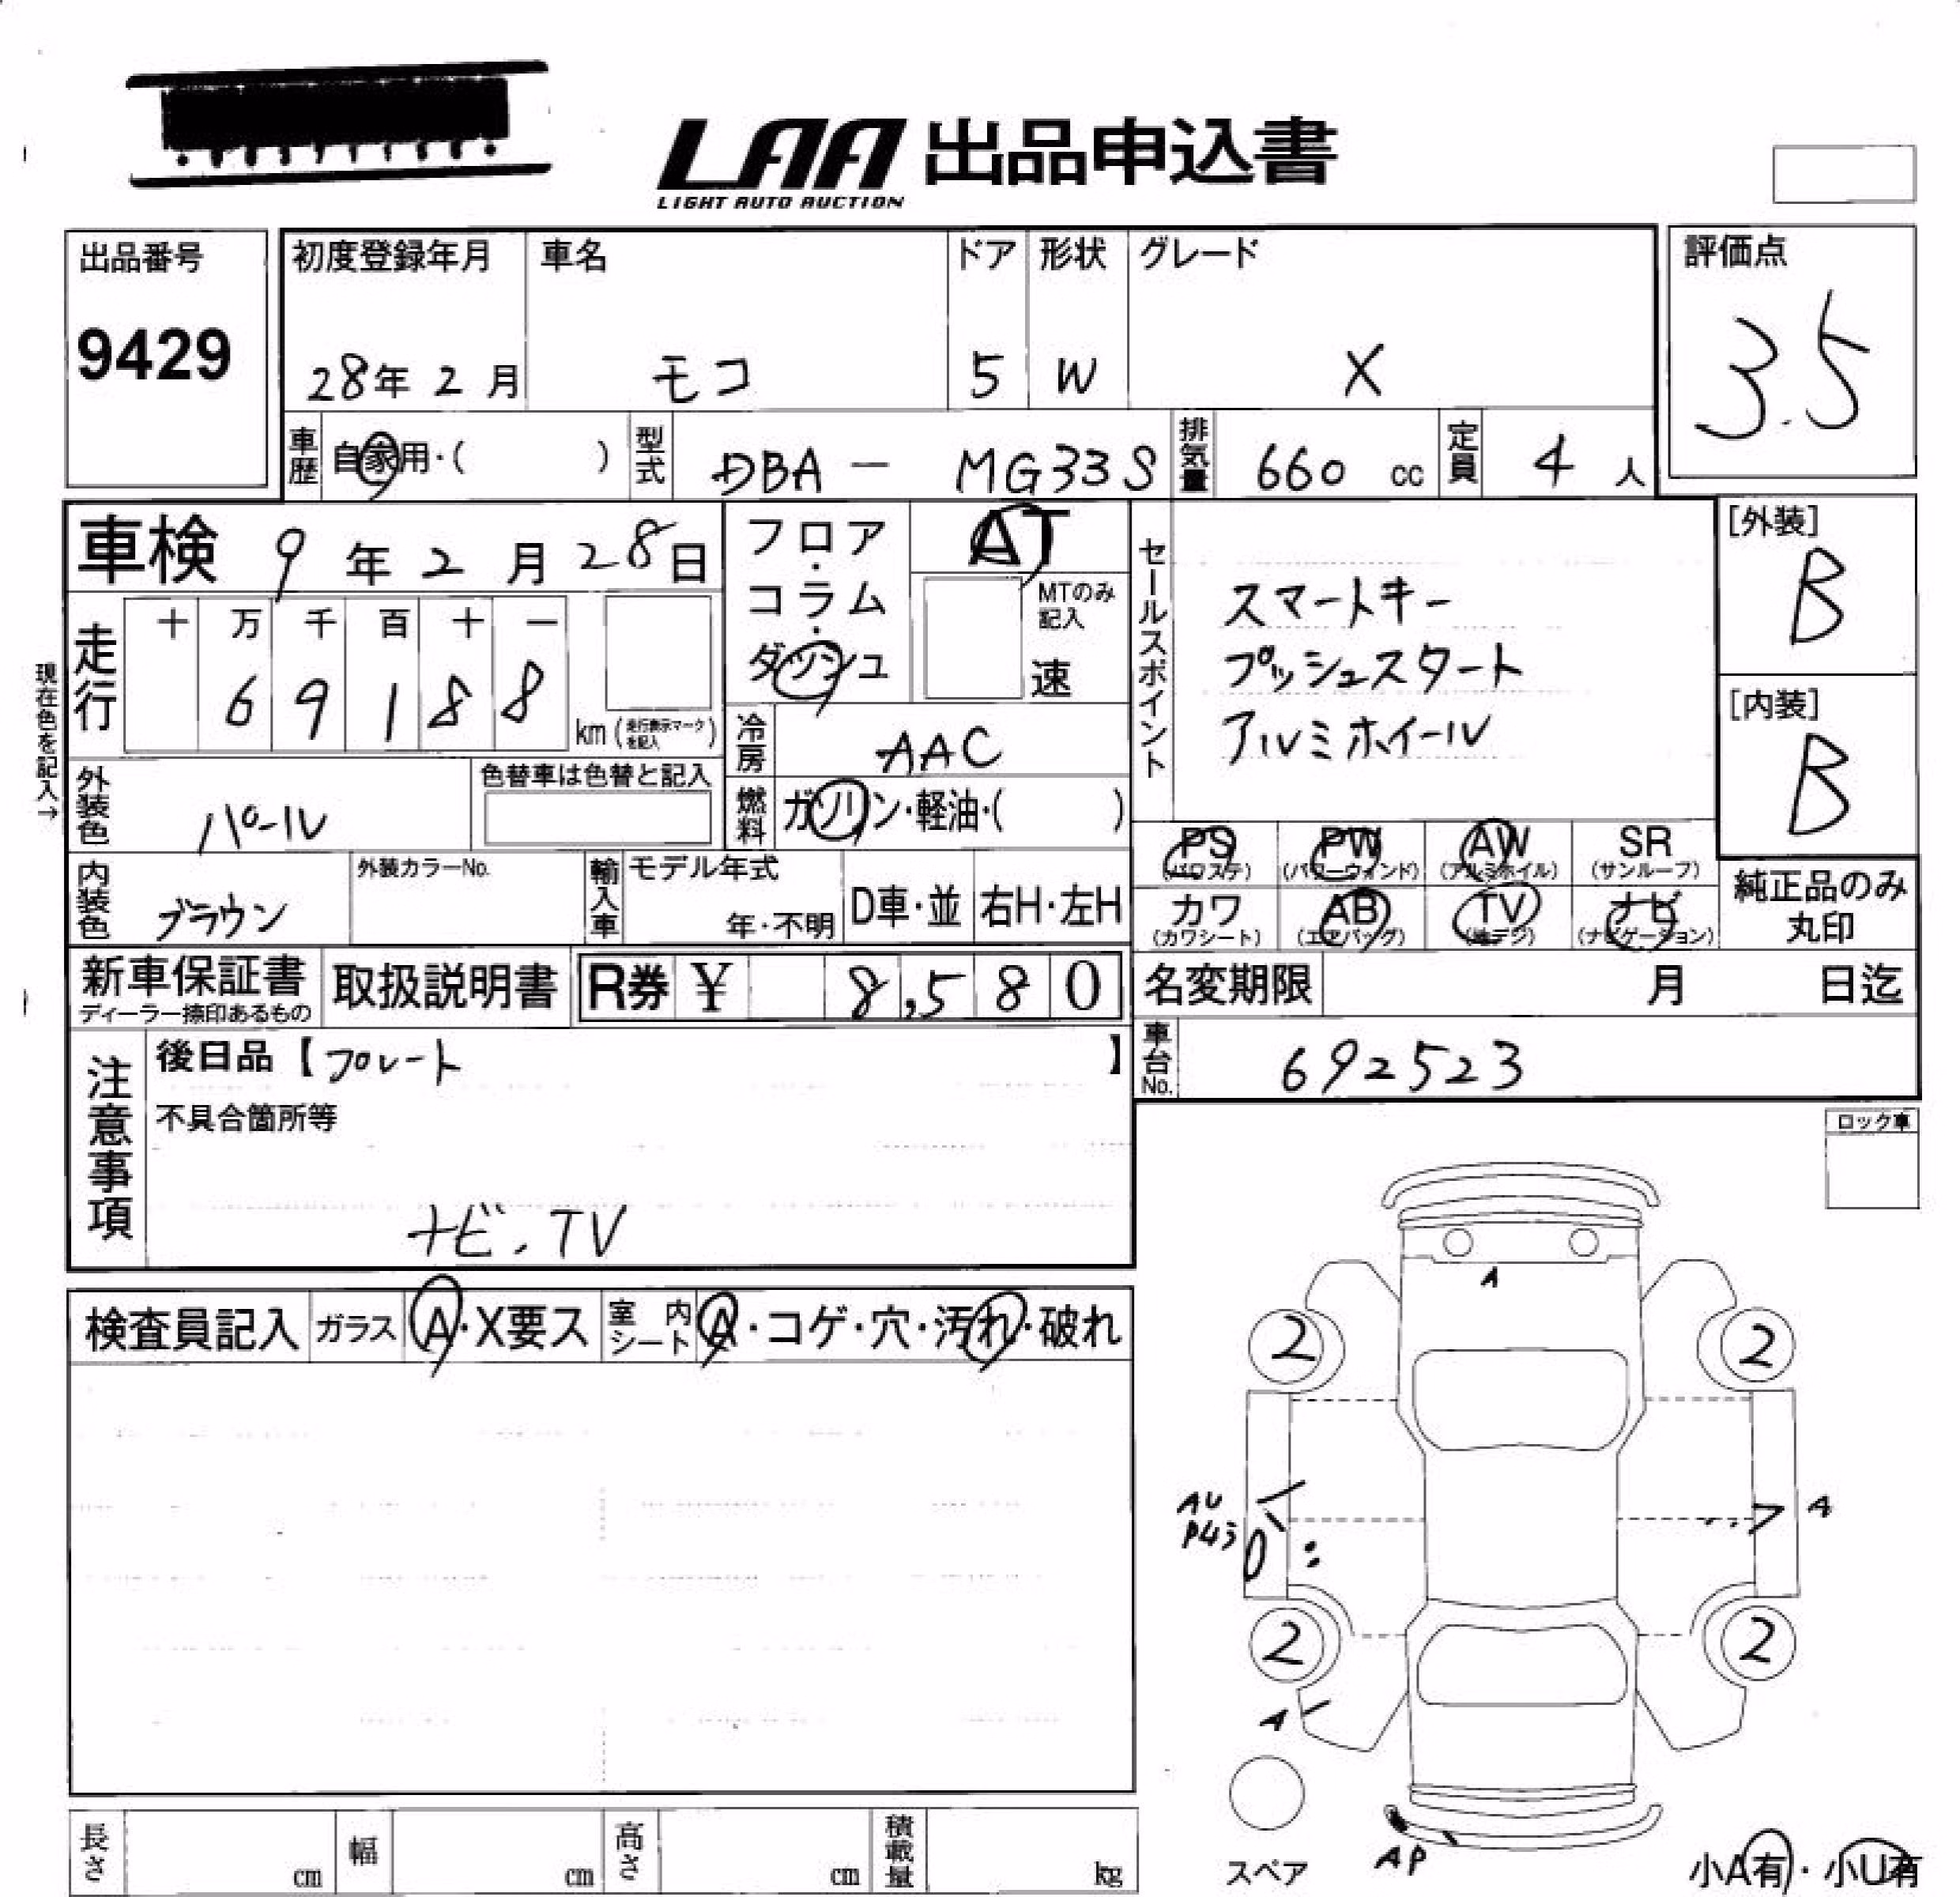 LAA 出品申込書
LIGHT AUTO AUCTION
出品番号
9429
初度登録年月
28年 2月
車名
モコ
ドア
5
形状
W
グレード
X
評価点
3.5
車歴
自家用・( )
型式
DBA － MG33S
排気量
660 cc
定員
4 人
車検 9年 2月 28日
現在色を記入→
走行
十 万 千 百 十 一
6 9 1 8 8
km (走行表示マークを記入)
フロア・コラム・ダッシュ
AT
MTのみ記入
速
冷房
AAC
燃料
ガソリン・軽油・( )
外装色
パール
色替車は色替と記入
内装色
ブラウン
外装カラーNo.
輸入車
モデル年式
年・不明
D車・並
右H・左H
セールスポイント
スマートキー
プッシュスタート
アルミホイール
[外装]
B
[内装]
B
PS
(パワステ)
PW
(パワーウィンド)
AW
(アルミホイル)
SR
(サンルーフ)
カワ
(カワシート)
AB
(エアバッグ)
TV
(地デジ)
ナビ
(ナビゲーション)
純正品のみ
丸印
新車保証書
ディーラー捺印あるもの
取扱説明書
R券 ¥ 8,580
名変期限 月 日迄
車台No.
692523
注意事項
後日品【プレート 】
不具合箇所等
ナビ、TV
ロック車
検査員記入
ガラス
A・X要ス
室内シート
A・コゲ・穴・汚れ・破れ
A
2
2
AU
A
2
2
A
AP
スペア
小A有・小U有
長さ
cm
幅
cm
高さ
cm
積載量
kg